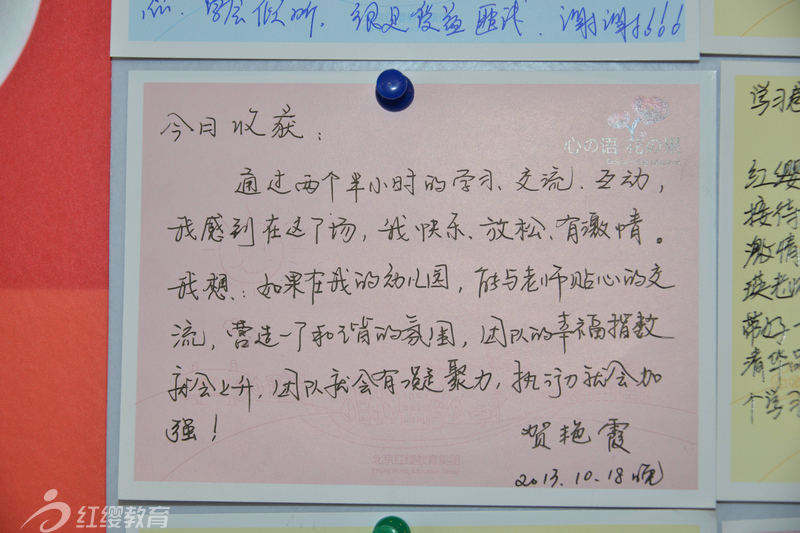 很是受益匪浅. 谢谢666
今日收获:
心の语
通过两个半小时的学习、交流、互动,
我感到在这个场,我快乐、放松、有激情。
我想:如果在我的幼儿园,能与老师贴心的交
流,营造一个和谐的氛围,团队的幸福指数
就会上升,团队就会有凝聚力,执行力就会加
强!
贺艳霞
2013.10.18晚
北京红缨教育集团
学习
红缨
接待
激情
瑛老师
带好一
清华
个学习
红缨教育